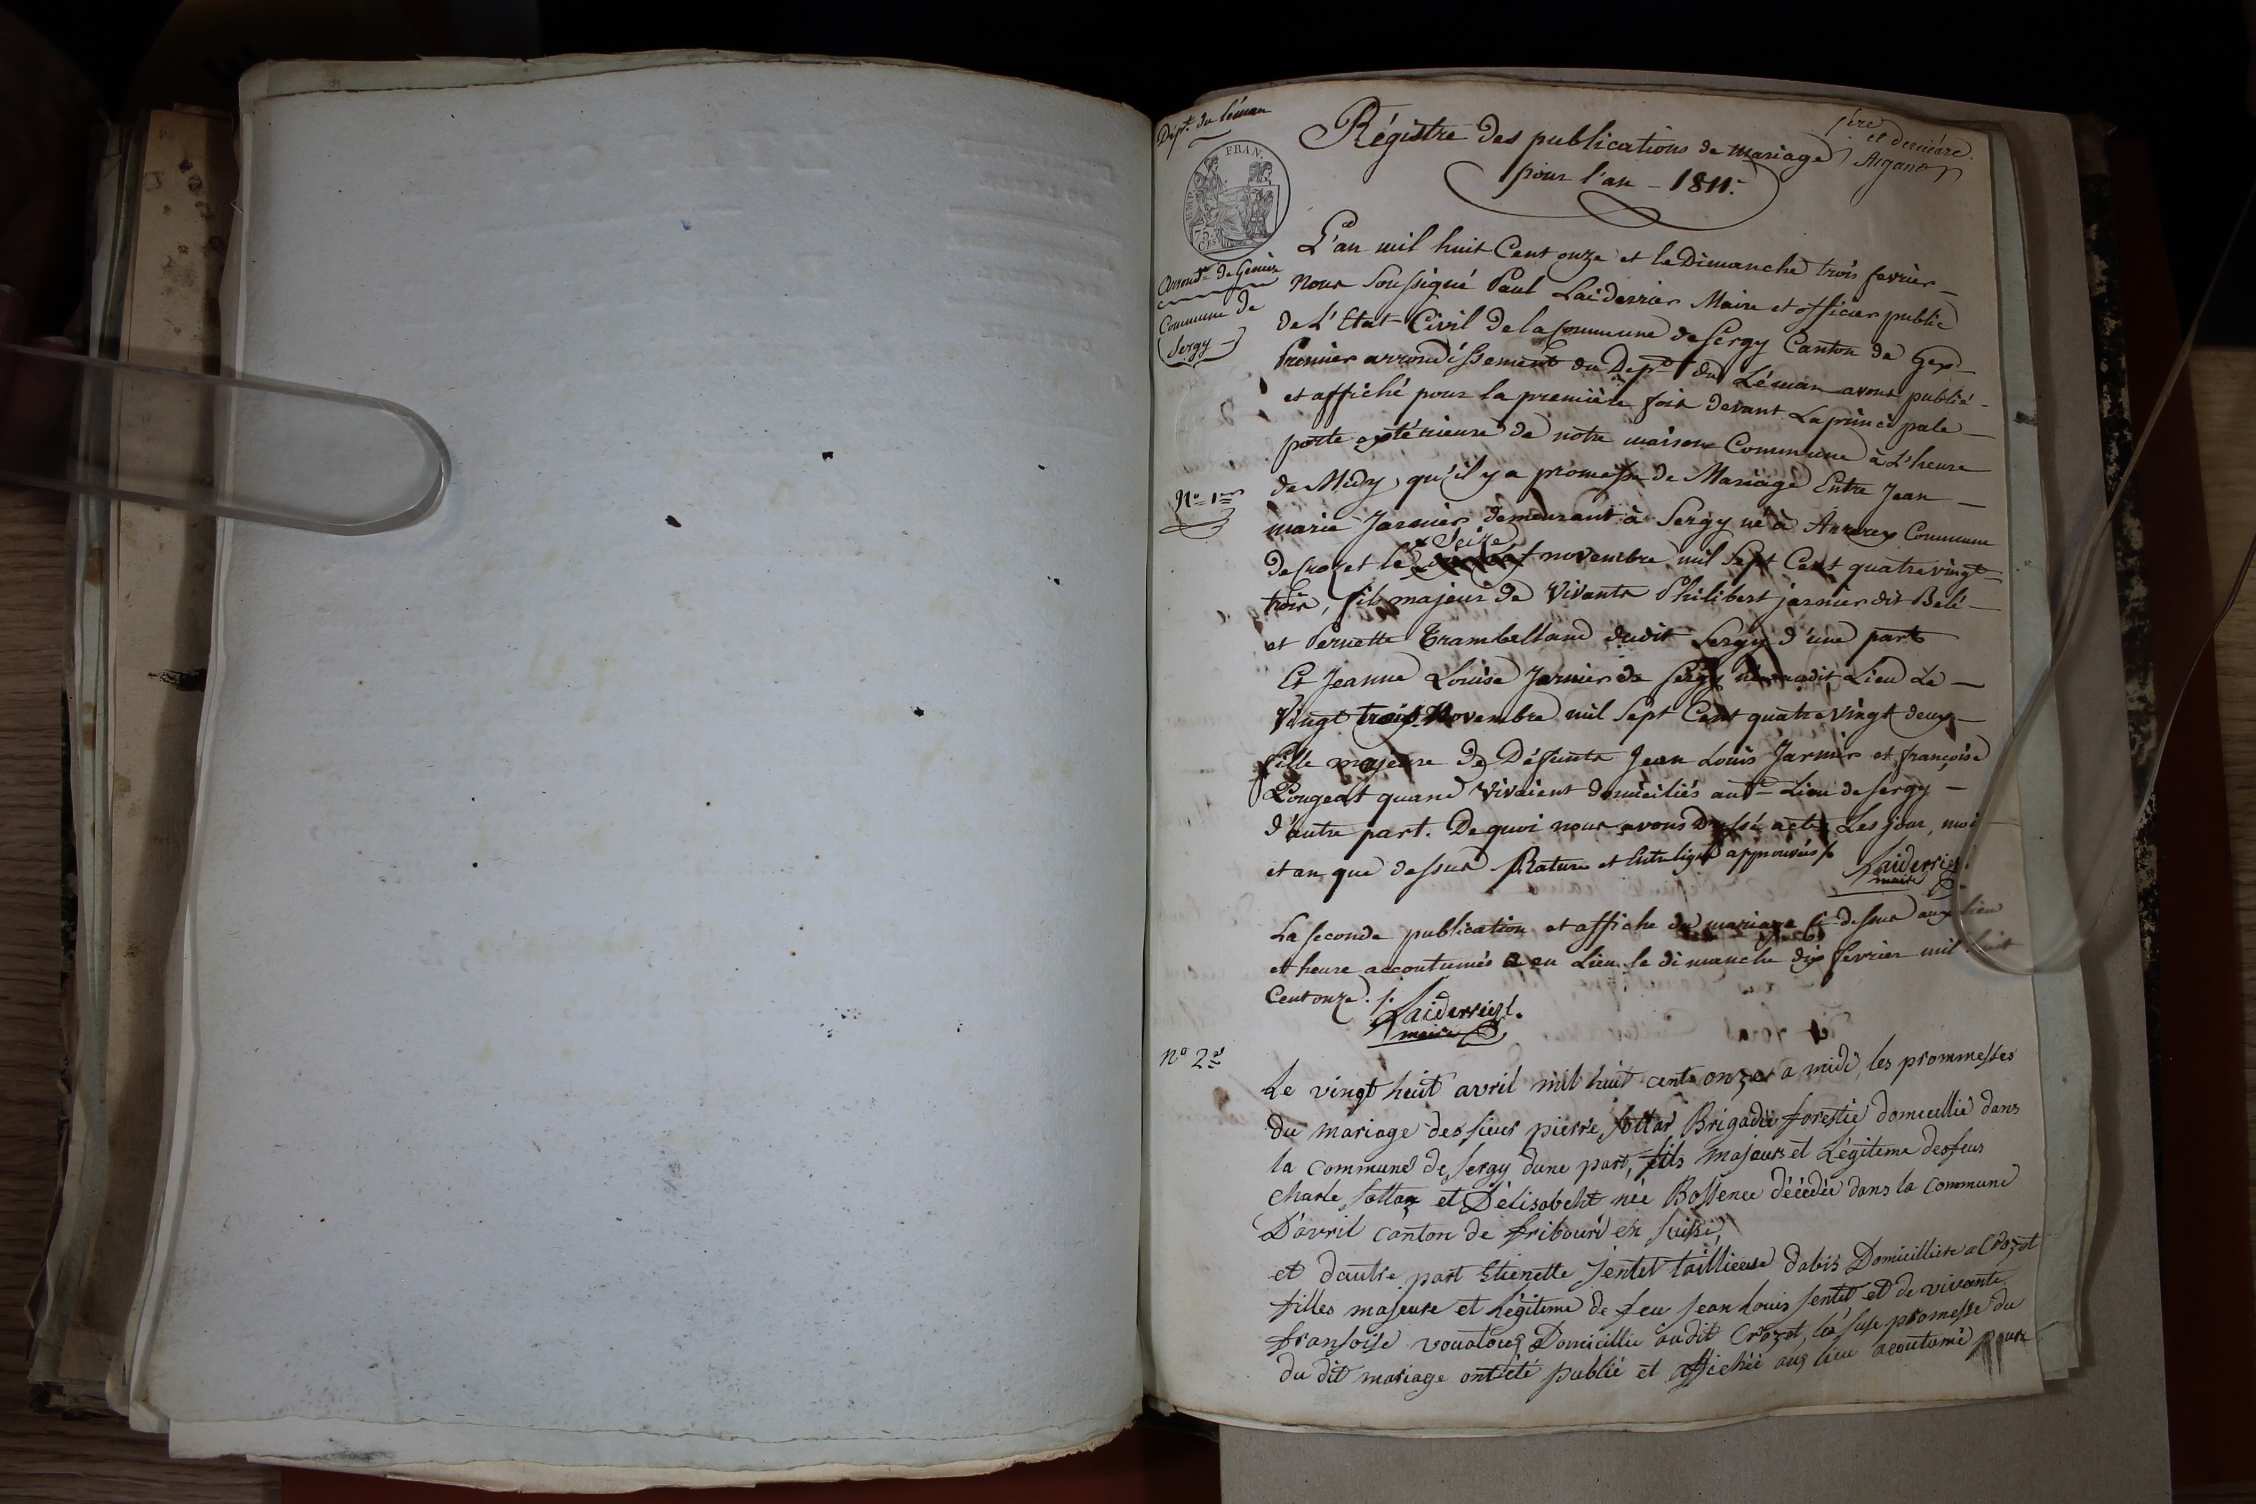 Dépt. du Léman
Régistre des publications de mariage
pour l'an - 1811.
1ère
et derniére
Argand
EMP. FRAN.
75 CES
Arrondt. de Genève
Commune de
Sergy
L'an mil huit Cent onze et le Dimanche trois fevrier
Nous Soussigné Paul Laiderrier Maire et officier public
de L'Etat-Civil de la Commune de Sergy Canton de Gex
Premier arrondissement du Dept. du Léman avons publié
et affiché pour la première fois devant La principale
porte extérieure de notre maison Commune à L'heure
N° 1er
de Midy, qu'il y a promesse de Mariage Entre Jean
marie Jarnier demeurant à Sergy né à Avouzex Commune
+ Seize
de Crozet le novembre mil Sept Cent quatre vingt
trois, fils majeur de Vivants Philibert jarnier dit Belé
et Pernette Trambelland dudit Sergy d'une part
Et Jeanne Louise Jarnier de Sergy née audit Lieu Le
Vingt trois Novembre mil Sept Cent quatre vingt deux
fille majeure de Défunts Jean Louis Jarnier et françoise
Pougeat quand Vivaient domiciliés audt. Lieu de Sergy
d'autre part. De quoi nous avons Dressé acte Les jour, moi
et an que dessus Rature et Entreligne approuvées
Laiderrier
maire
La seconde publication et affiche du mariage Ci-dessus aux lieu
et heure accoutumés a eu Lieu le dimanche dix fevrier mil huit
Cent onze.
Laiderrier
maire
N° 2d
Le vingt heuit avril mil huit cents onzes a midi, les prommesses
du mariage des sieur pierre Sottar Brigadie forestie domicillié dans
la commune de Sergy dune part, fils majeurs et Légiteme des feus
Charle Sottaz et D'élisabeht née Bossence décédée dans la commune
D'avril canton de fribourd en suisse,
et dautre part Etienette Jentet taillieuse dabis Domicilliere a Crozet
filles majeure et légiteme de feu Jean Louis Jentet et de vivante
fransoise vouatoux Domicillie audit Crozet, les suse promesse du
du dit mariage ont été publié et affichéé aux lieu acoutumé pour